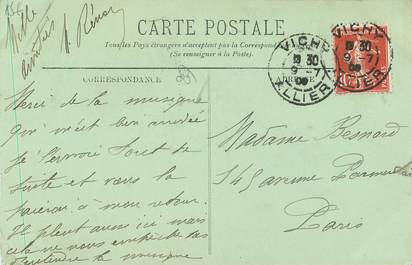 Mille
amitiés
CARTE POSTALE
Tous les Pays étrangers n'acceptent pas la Correspondance
(Se renseigner à la Poste)
CORRESPONDANCE
ADRESSE
VICHY
30
9 -7
09
ALLIER
VICHY
30
9 -7
09
ALLIER
Merci de la musique
qui m'est bien arrivée
Je l'envoie tout de
suite et vous la
à mon retour
Il pleut aussi ici mais
cela ne nous empêche pas
d'entendre la musique
Madame Besnard
145 avenue Parmentier
Paris